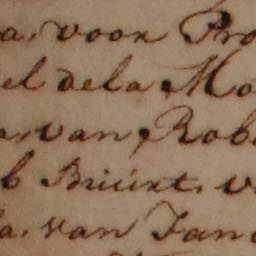 a, voor Pro
el dela Mo
van Rob
b Buurt. v
a, van Jan